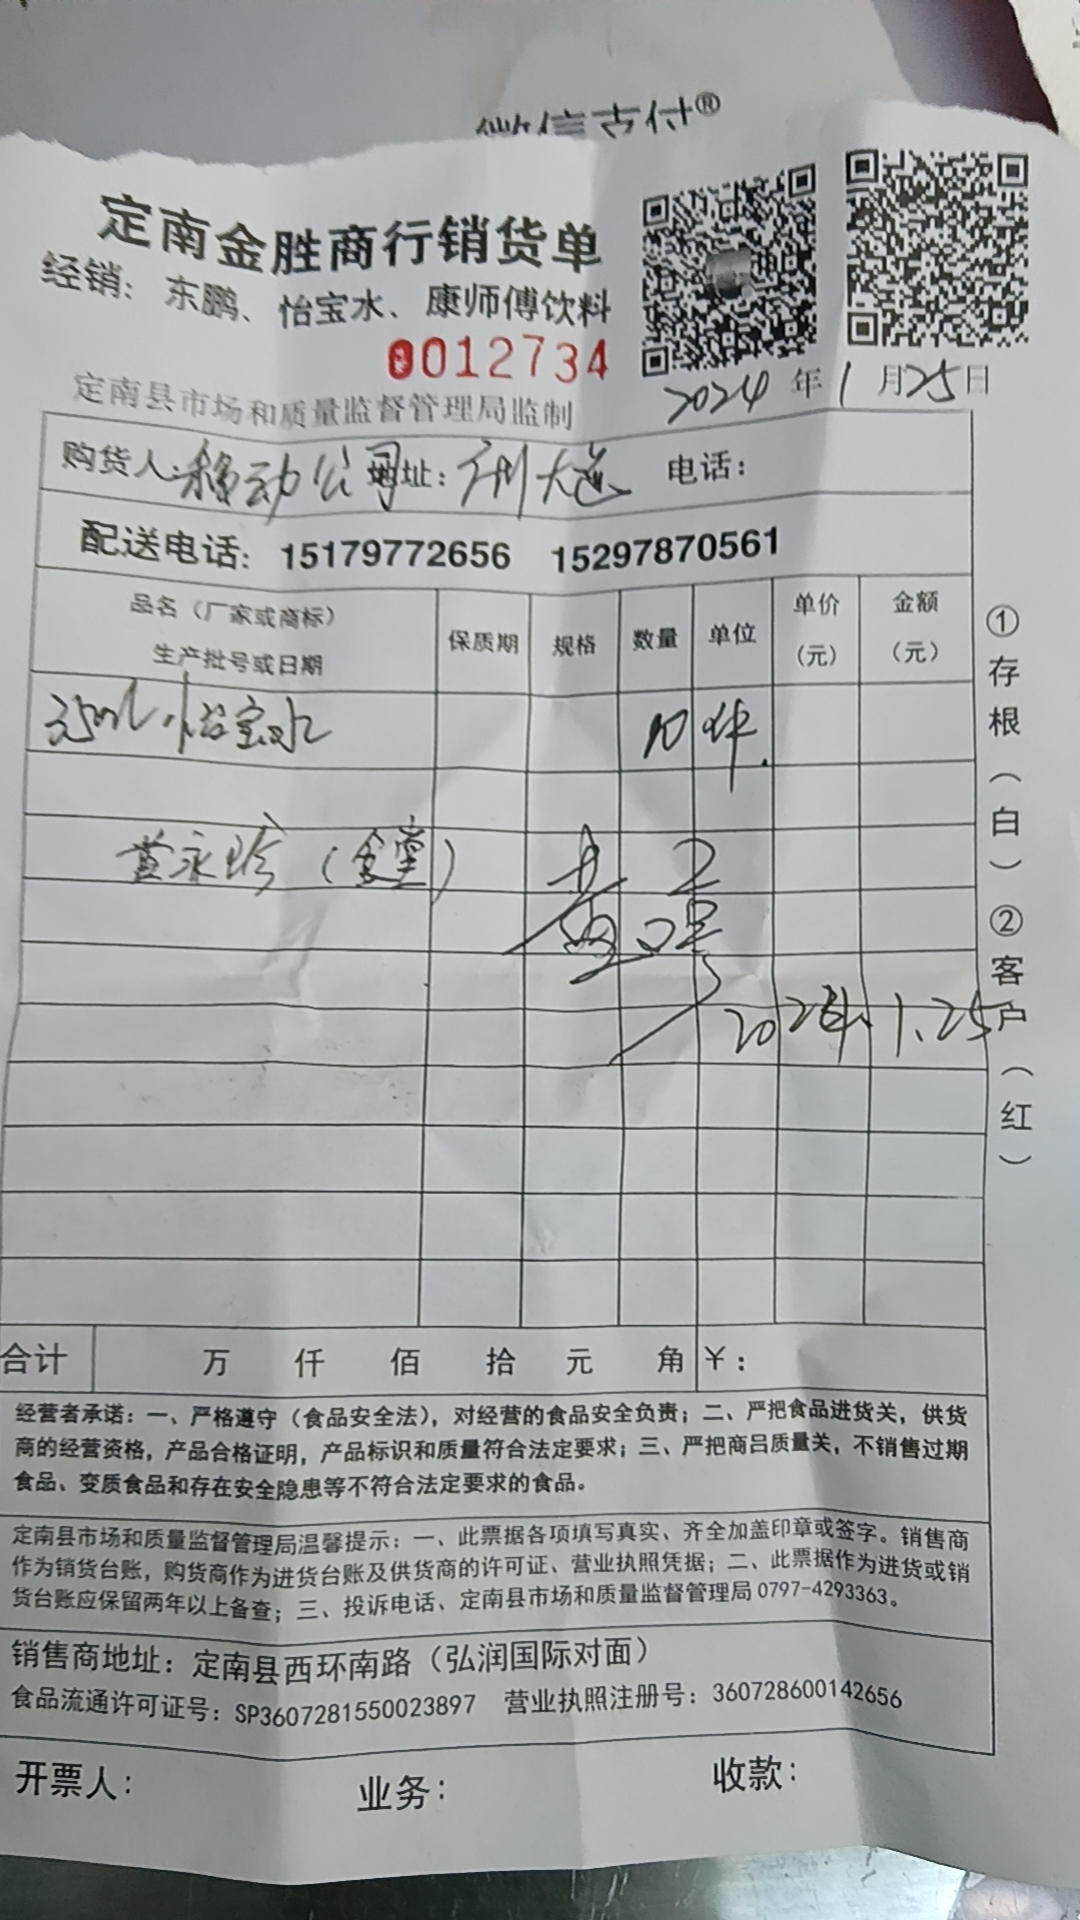 信支付®
定南金胜商行销货单
经销：东鹏、怡宝水、康师傅饮料
0012734
2024年1月25日
定南县市场和质量监督管理局监制
购货人：移动公司 地址： 电话：
配送电话：15179772656 15297870561
品名（厂家或商标） 生产批号或日期 保质期 规格 数量 单位 单价（元） 金额（元）
怡宝水 10件
黄永珍（食堂）
2024.1.25
①存根（白）②客户（红）
合计 万 仟 佰 拾 元 角 ￥：
经营者承诺：一、严格遵守（食品安全法），对经营的食品安全负责；二、严把食品进货关，供货
商的经营资格，产品合格证明，产品标识和质量符合法定要求；三、严把商吕质量关，不销售过期
食品、变质食品和存在安全隐患等不符合法定要求的食品。
定南县市场和质量监督管理局温馨提示：一、此票据各项填写真实、齐全加盖印章或签字。销售商
作为销货台账，购货商作为进货台账及供货商的许可证、营业执照凭据；二、此票据作为进货或销
货台账应保留两年以上备查；三、投诉电话、定南县市场和质量监督管理局0797-4293363。
销售商地址：定南县西环南路（弘润国际对面）
食品流通许可证号：SP3607281550023897 营业执照注册号：360728600142656
开票人： 业务： 收款：